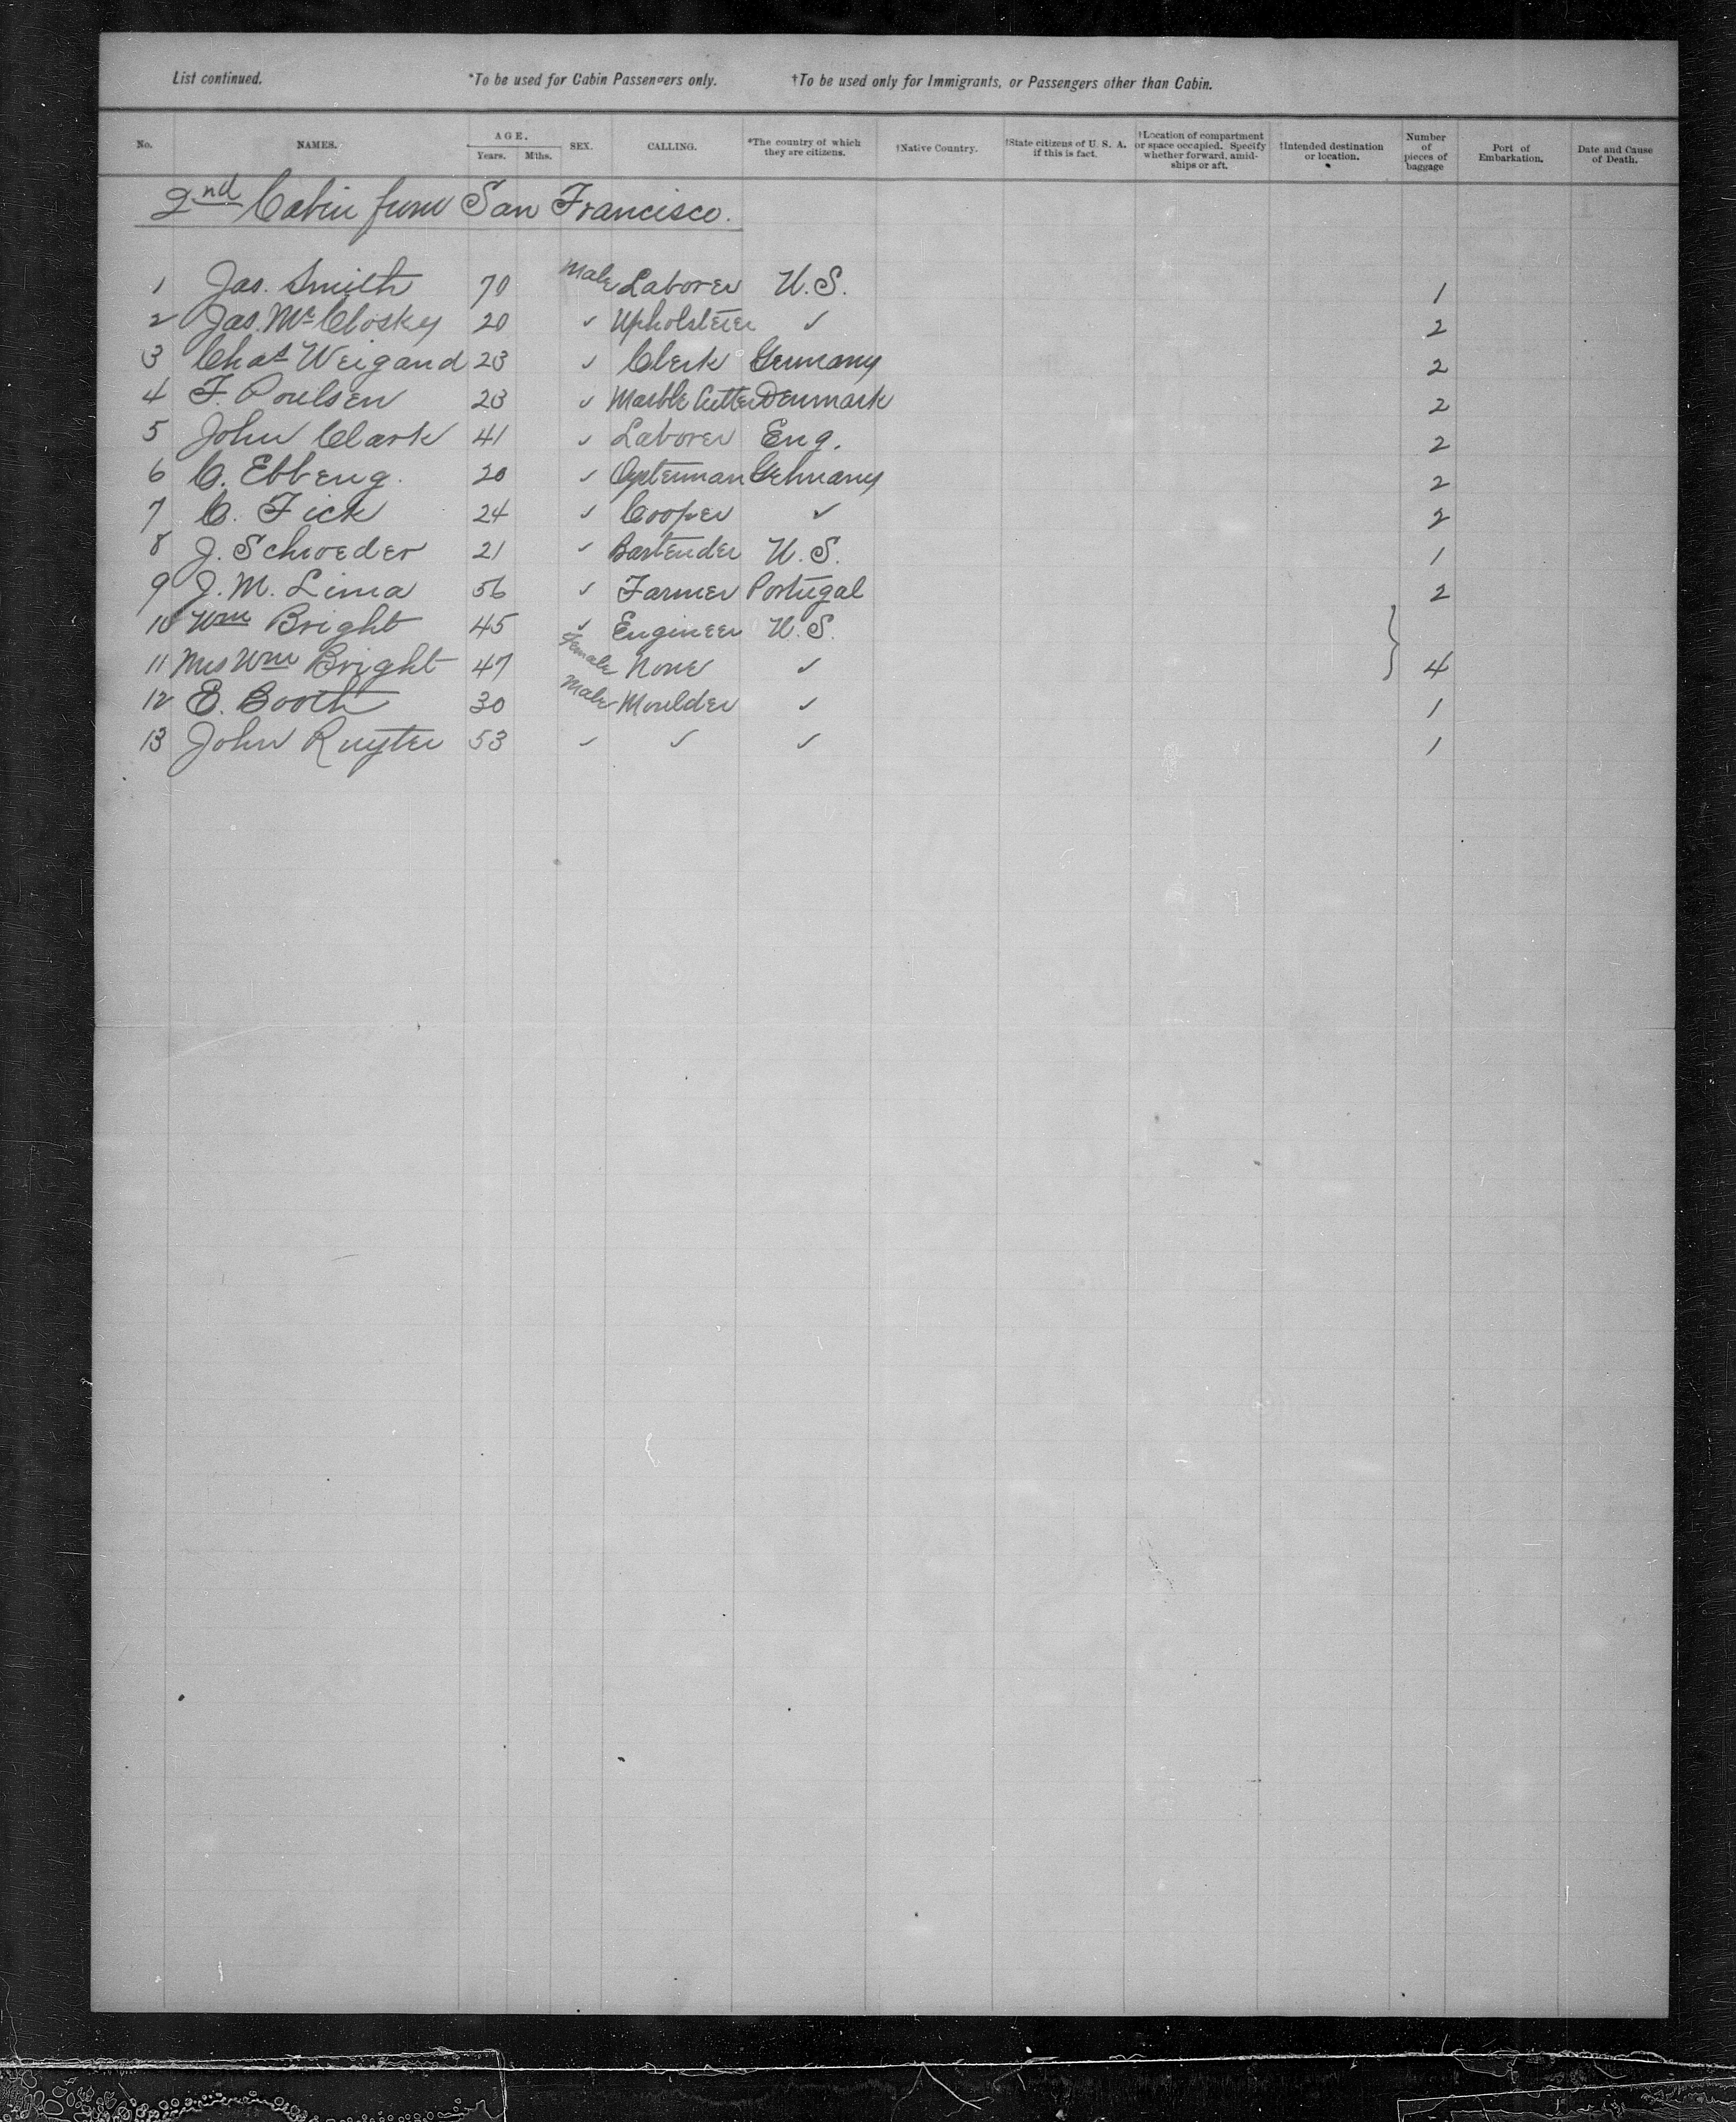 List continued. *To be used for Cabin Passengers only. †To be used only for Immigrants, or Passengers other than Cabin.
No. NAMES. AGE. Years. Mths. SEX. CALLING. *The country of which they are citizens. †Native Country. †State citizens of U. S. A. if this is fact. †Location of compartment or space occupied. Specify whether forward, amid-ships or aft. †Intended destination or location. Number of pieces of baggage Port of Embarkation. Date and Cause of Death.
2nd Cabin from San Francisco.
1 Jas. Smith 70 Male Laborer U.S. 1
2 Jas. McClosky 20 ✓ Upholsterer ✓ 2
3 Chas Weigand 23 ✓ Clerk Germany 2
4 F. Poulsen 23 ✓ Marble Cutter Denmark 2
5 John Clark 41 ✓ Laborer Eng. 2
6 C. Ebbeng. 20 ✓ Oysterman Germany 2
7 C. Fick 24 ✓ Cooper ✓ 2
8 J. Schroeder 21 ✓ Bartender U.S. 1
9 J. M. Lima 56 ✓ Farmer Portugal 2
10 Wm Bright 45 ✓ Engineer U.S. }
11 Mrs Wm Bright 47 Female None ✓ 4
12 E. Booth 30 Male Moulder ✓ 1
13 John Ruyter 53 ✓ ✓ ✓ 1